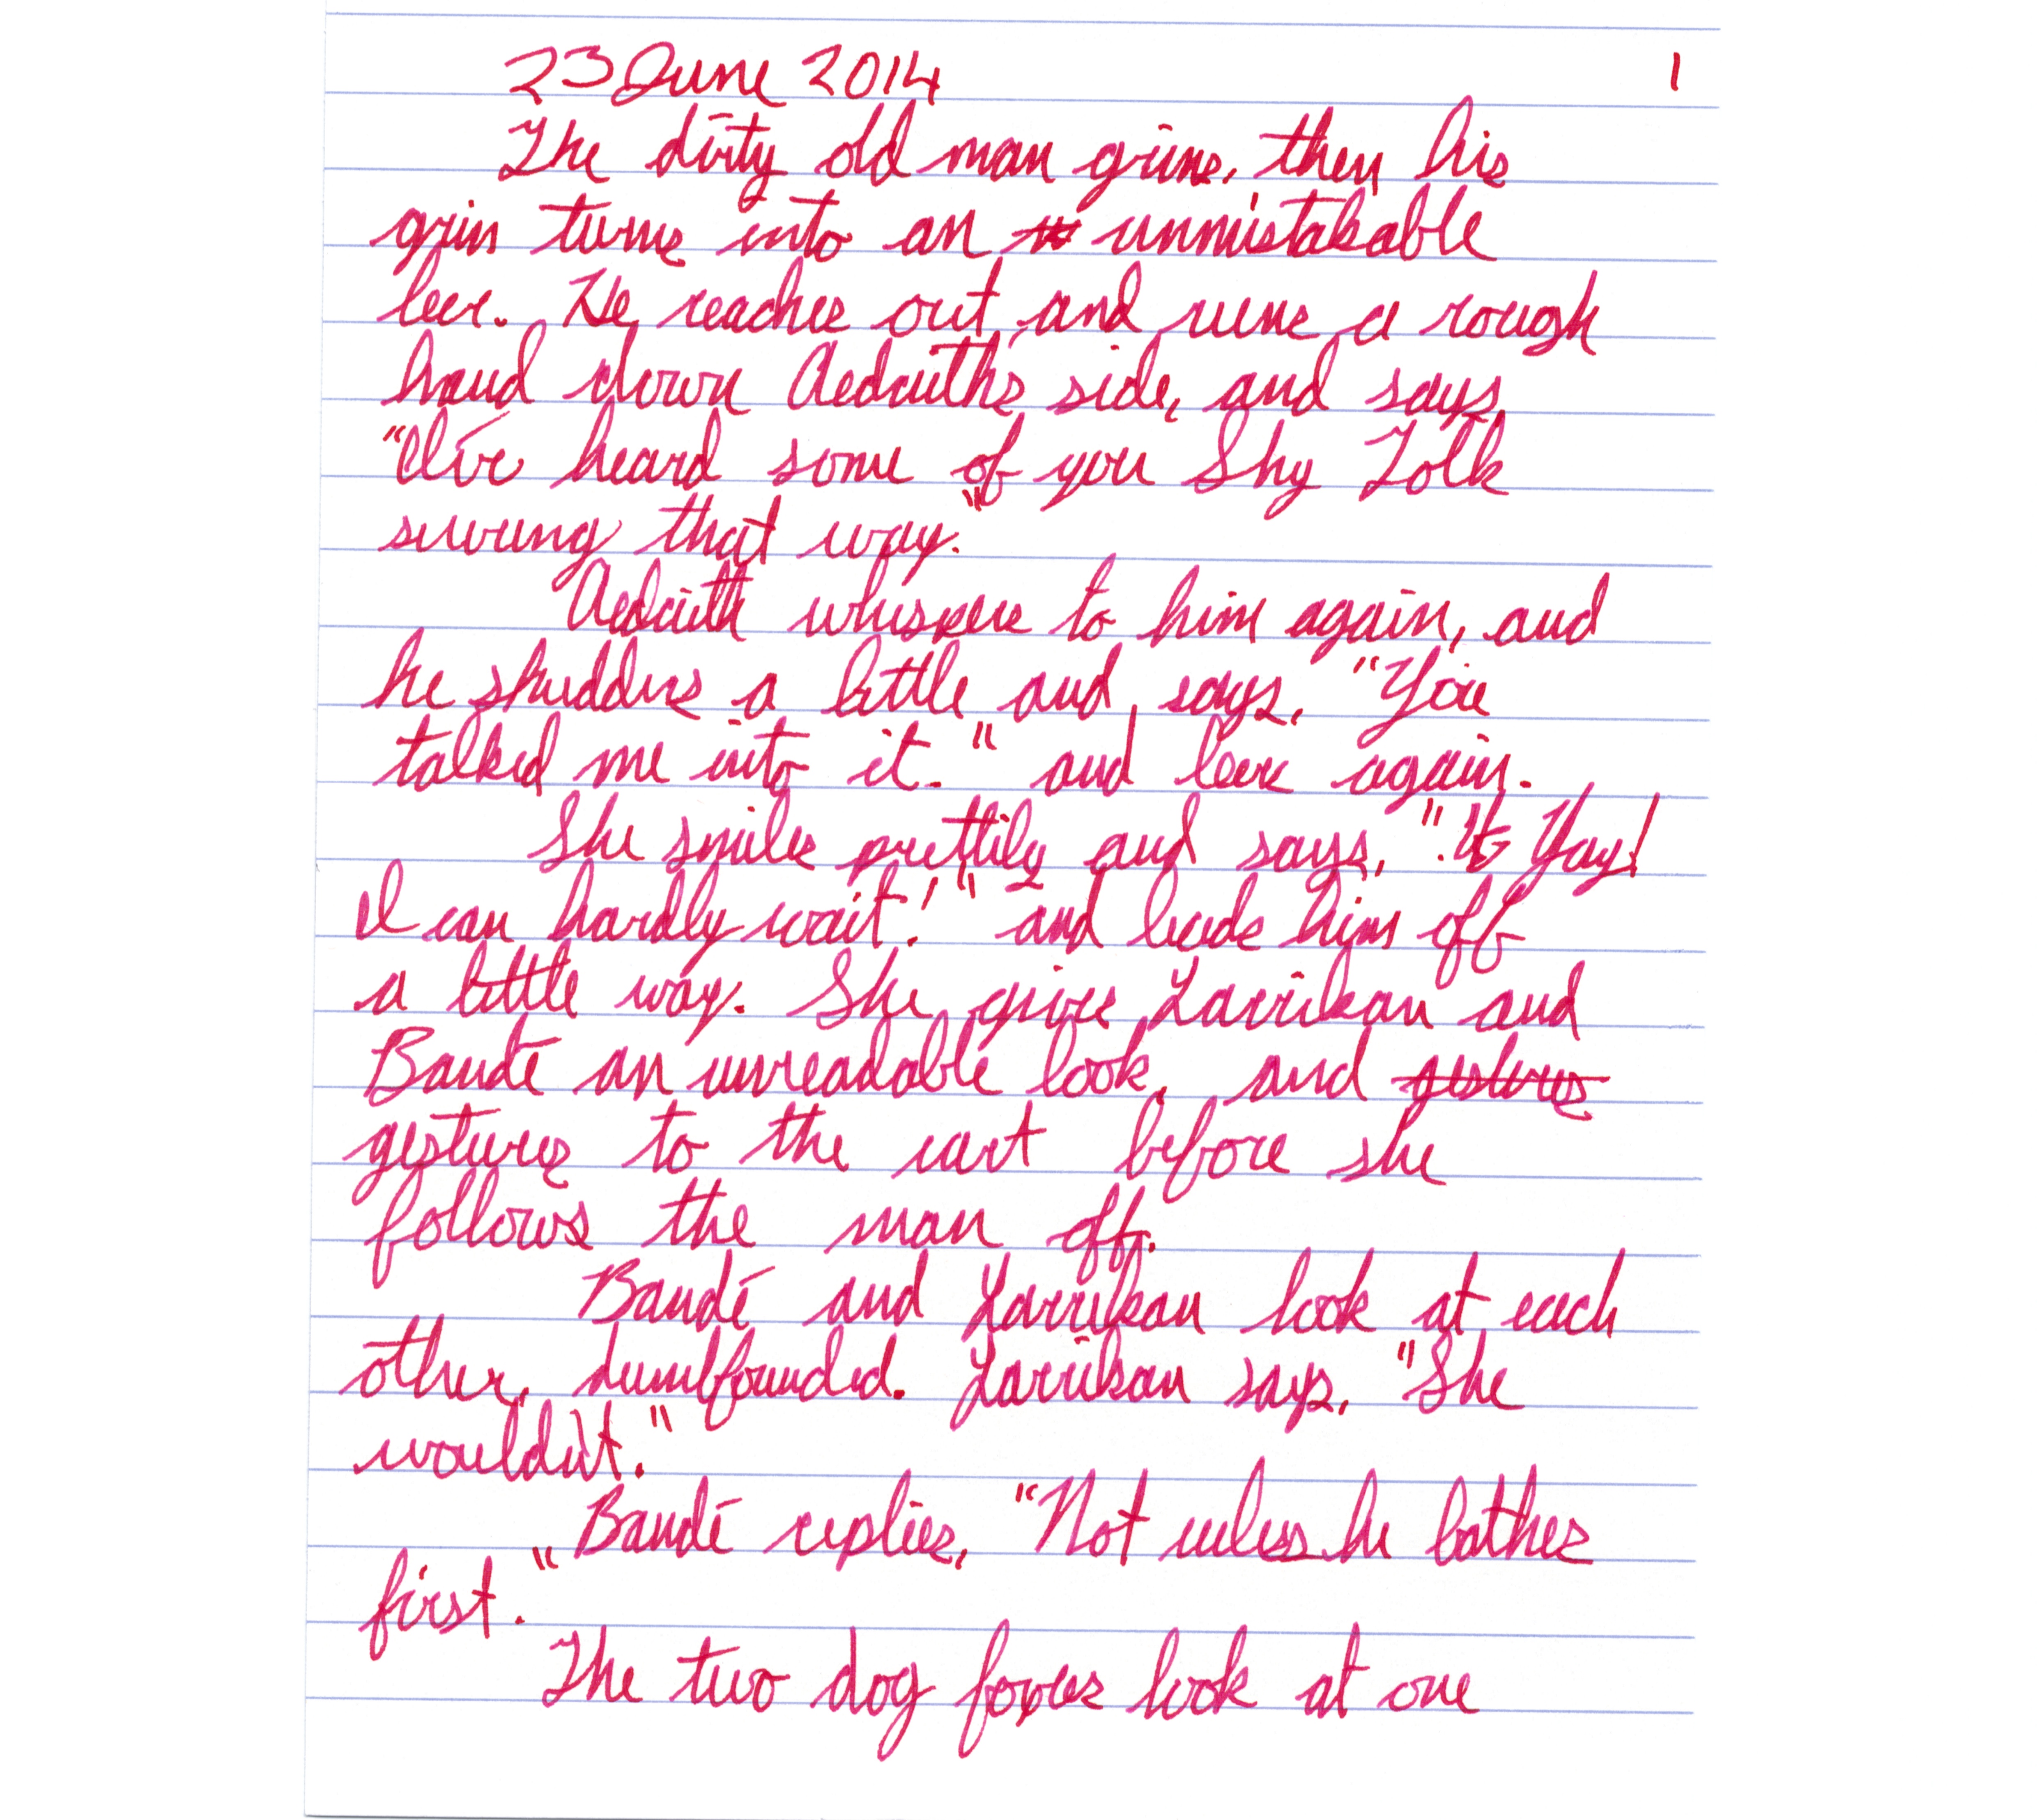 23 June 2014 1
The dirty old man grins, then his
grin turns into an unmistakable
leer. He reaches out and runs a rough
hand down Aedaiths side, and says,
"I've heard some of you Shy Folk
swung that way."
Aedaith whispers to him again, and
he shudders a little and says, "You
talked me into it." and leers again.
She smiles prettily and says, " Yay!
I can hardly wait!" and leads him off
a little way. She gives Larrikan and
Baudé an unreadable look, and gestures
gestures to the cart before she
follows the man off.
Baudé and Larrikan look at each
other, dumbfounded. Larrikan says, "She
wouldn't."
Baudé replies, "Not unless he bathes
first."
The two dog foxes look at one